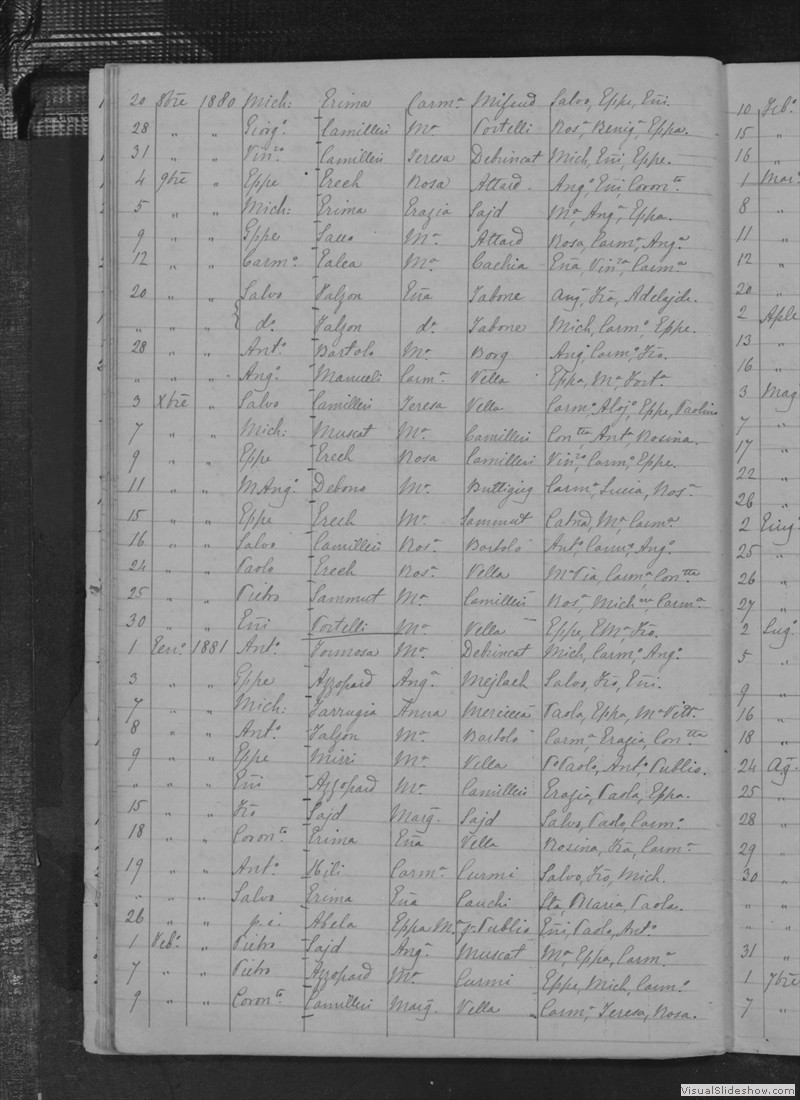 20 8bre 1880 Mich: Erima Carm.a Mifsud Salvo, Eppe, Eñi.
28 " " Giorg.o Camilleri M.a Portelli Ros.a, Benig.a, Eppa.
31 " " Vin.zo Camilleri Teresa Debrincat Mich, Eñi, Eppe.
4 9bre " Eppe Grech Rosa Attard Ang.o, Eñi, Coron.to
5 " " Mich: Erima Grazia Sajd M.a, Ang.a, Eppa.
9 " " Eppe M.a Attard Rosa, Carm.o, Ang.a
12 " " Carm.o Galea M.a Cachia Eña, Vin.za, Carm.a
20 " " Salvo Falzon Eña Tabone Ang.o, Fro, Adelajde.
" " " do. Falzon do. Tabone Mich, Carm.o, Eppe.
28 " " Ant.o Bartolo M.a Borg Ang.o, Carm.o, Fro.
" " " Ang.o Manueli Carm.a Vella Eppa, M.a
3 Xbre " Salvo Camilleri Teresa Vella Carm.o, Aloj.o, Eppe, Paolino
7 " " Mich: Muscat M.a Camilleri Con.tta, Ant.a, Rosina.
9 " " Eppe Grech Rosa Camilleri Vin.zo, Carm.o, Eppe.
11 " " MAng.o Debono M.a Buttigieg Carm.o, Lucia, Ros.a
15 " " Eppe Grech M.a Sammut Catña, M.a, Carm.a
16 " " Salvo Camilleri Ros.a Bartolo Ant.o, Carm.o, Ang.o
24 " " Paolo Grech Ros.a Vella M.a Pia, Carm.a, Con.tta
25 " " Pietro Sammut M.a Camilleri Ros.a, Mich.na, Carm.a
30 " " Eñi Portelli M.a Vella Eppe, EM.a, Fro.
1 Gen.o 1881 Ant.o Formosa M.a Debrincat Mich, Carm.o, Ang.o
3 " " Eppe Azzopard Ang.a Mejlach Salvo, Fro, Eñi.
7 " " Mich: Farrugia Anna Mericcea Paola, Eppa, M.a Vitt.a
8 " " Ant.o Falzon M.a Bartolo Carm.a, Grazia, Con.tta
9 " " Eppe Mizzi M.a Vella P.o Paolo, Ant.o, Publio.
" " " Eñi Azzopard M.a Camilleri Grazia, Paola, Eppa.
15 " " Fro Sajd Marg. Sajd Salvo, Paolo, Carm.o
18 " " Coron.to Erima Eña Vella Rosina, Fra, Carm.a
19 " " Ant.o Hili Carm.a Curmi Salvo, Fro, Mich.
" " " Salvo Erima Eña Cauchi Sta, Maria, Paola.
26 " " p.i. Abela Eppa M.a q. Publio Eñi, Paolo, Ant.o
1 Feb.o " Pietro Sajd Ang.a Muscat M.a, Eppa, Carm.a
7 " " Pietro Azzopard M.a Curmi Eppe, Mich, Carm.o
9 " " Coron.to Camilleri Marg. Vella Carm.a, Teresa, Rosa.
10 Feb.o
15 "
16 "
1 Mar.o
8 "
11 "
12 "
20 "
2 Aple
13 "
16 "
3 Mag
7 "
17 "
22 "
26 "
2 Giug.o
25 "
26 "
27 "
2 Lug.o
5 "
9 "
16 "
18 "
24 Ag.
25 "
28 "
29 "
30 "
" "
" "
31 "
1 7bre
7 "
VisualSlideshow.com